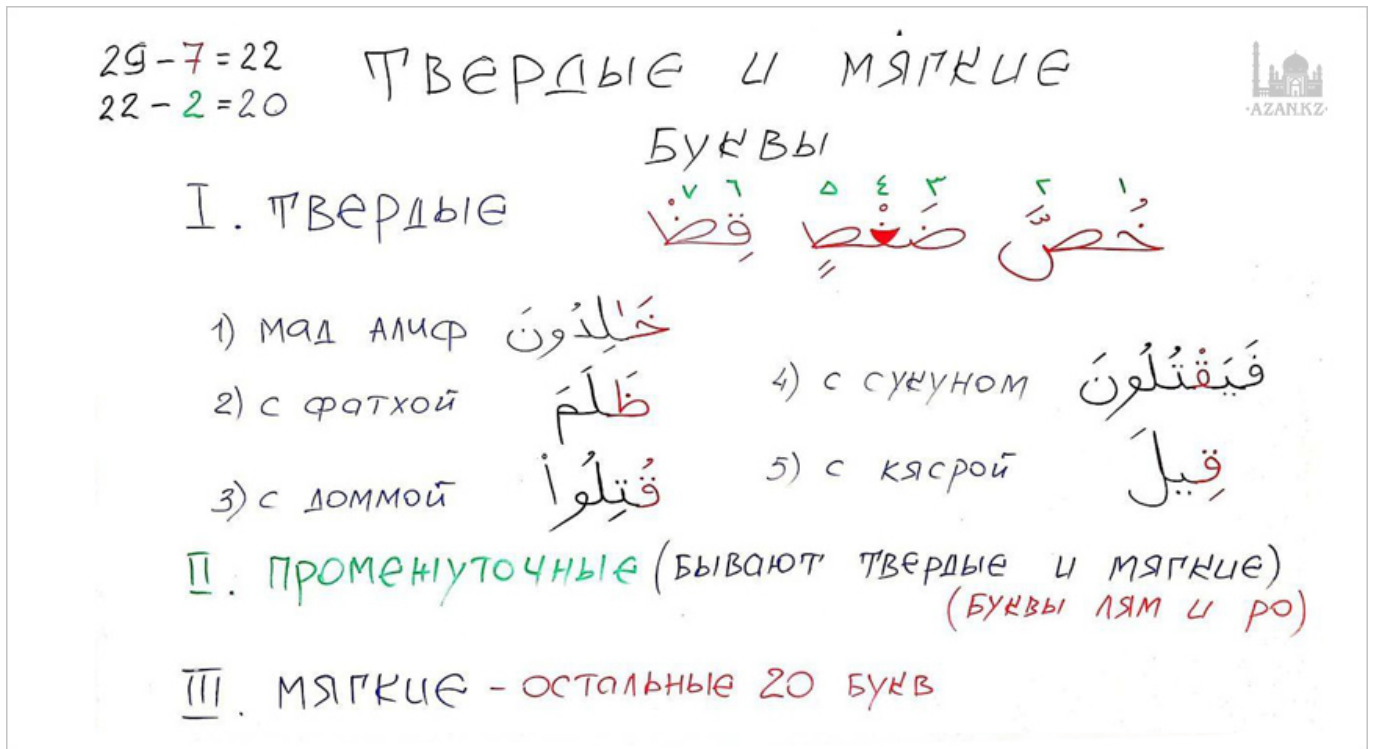 29-7=22
22-2=20
ТВЕРДЫЕ И МЯГКИЕ
БУКВЫ
AZAN.KZ
١ ٢ ٣ ٤ ٥ ٦ ٧
I. ТВЕРДЫЕ خُصَّ ضَغْصٍ قِضْ
1) МАД АЛИФ خَٰلِدُونَ
2) С ФАТХОЙ ظَلَمَ
3) С ДОММОЙ قُتِلُوا۟
4) С СУКУНОМ فَيَقْتُلُونَ
5) С КЯСРОЙ قِيلَ
II. ПРОМЕЖУТОЧНЫЕ (БЫВАЮТ ТВЕРДЫЕ И МЯГКИЕ)
(БУКВЫ ЛЯМ И РО)
III. МЯГКИЕ - ОСТАЛЬНЫЕ 20 БУКВ